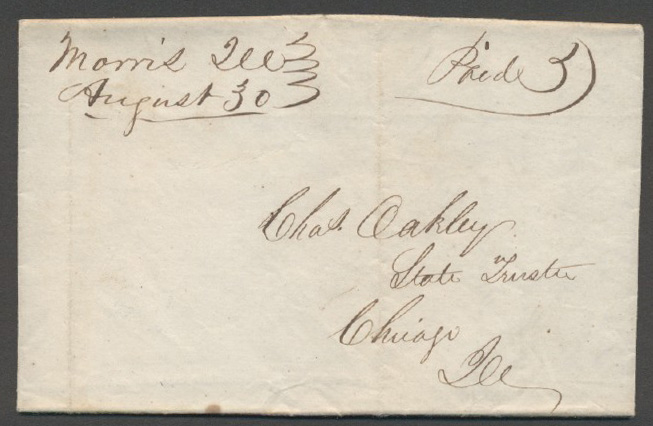 Morris Ill
Paid 5
August 30
Chas. Oakley
State Trustee
Chicago
Ill